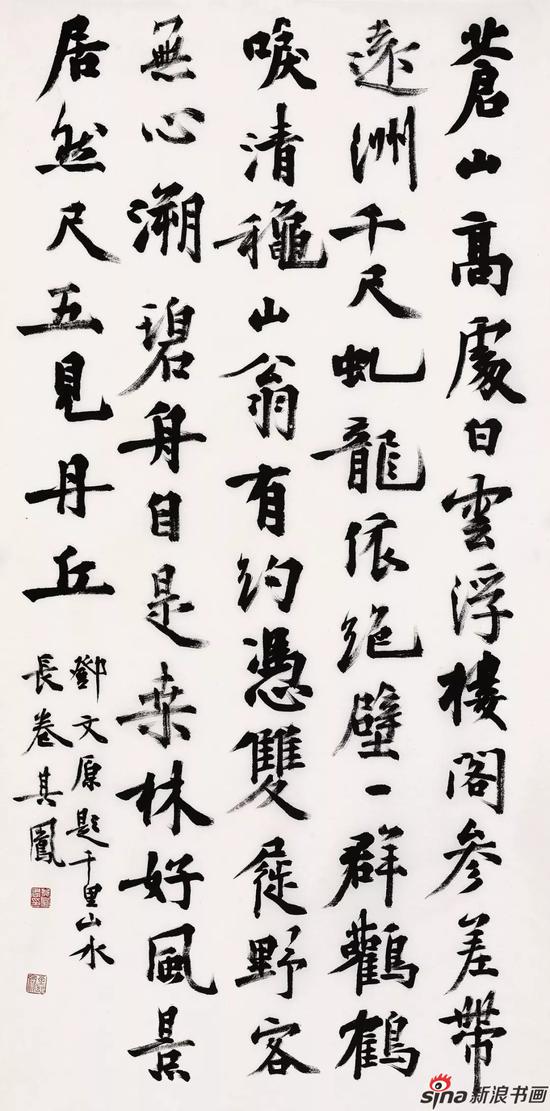 蒼山高處白雲浮樓閣參差帶
遠洲千尺虬龍依絕壁一群鸛鶴
唳清龝山翁有約憑雙屐野客
無心溯碧舟自是桒林好風景
居然尺五見丹丘
鄧文原題千里山水
長卷其鳳
sina新浪书画